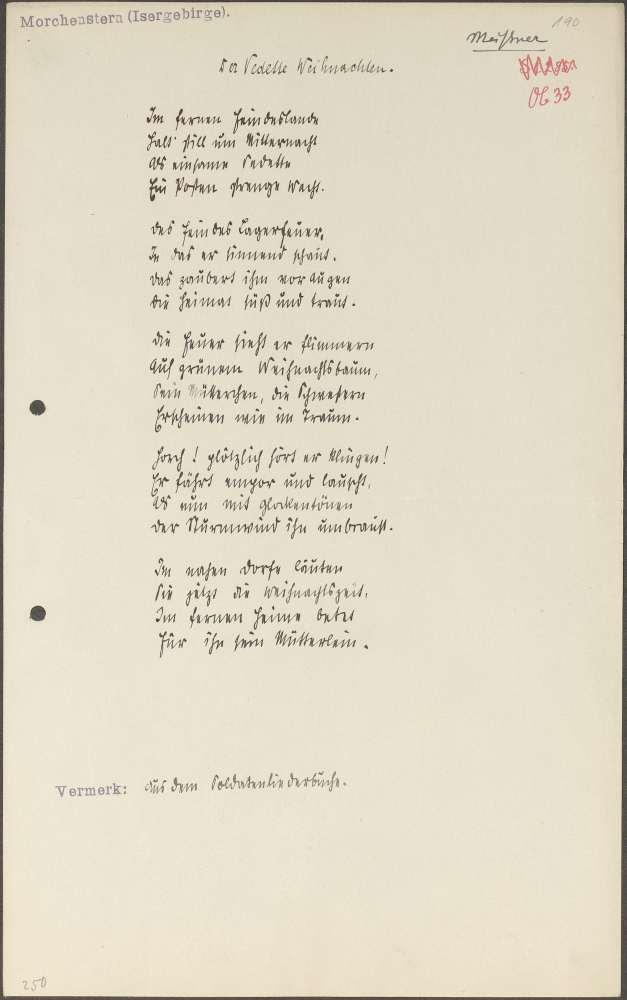 Morchenstern (Isergebirge).
190
Meißner
Ob 33
Der Vedette Weihnachten.
Im fernen Feindeslande
Halt still um Mitternacht
Als einsame Vedette
Ein Posten strenge Wacht.
Des Feindes Lagerfeuer,
In das er sinnend schaut.
Das zaubert ihm vor Augen
Die Heimat süß und traut.
Die Feuer sieht er flimmern
Auf grünem Weihnachtsbaum,
Sein Mütterchen, die Schwestern
Erscheinen wie im Traum.
Horch! plötzlich hört er klingen!
Er fährt empor und lauscht,
Als nun mit Glockentönen
Der Sturmwind ihn umbraust.
Im nahen Dorfe läuten
Sie jetzt die Weihnachtszeit,
Im fernen Heime betet
Für ihn sein Mütterlein.
Vermerk: Aus dem Soldatenliederbuche.
250